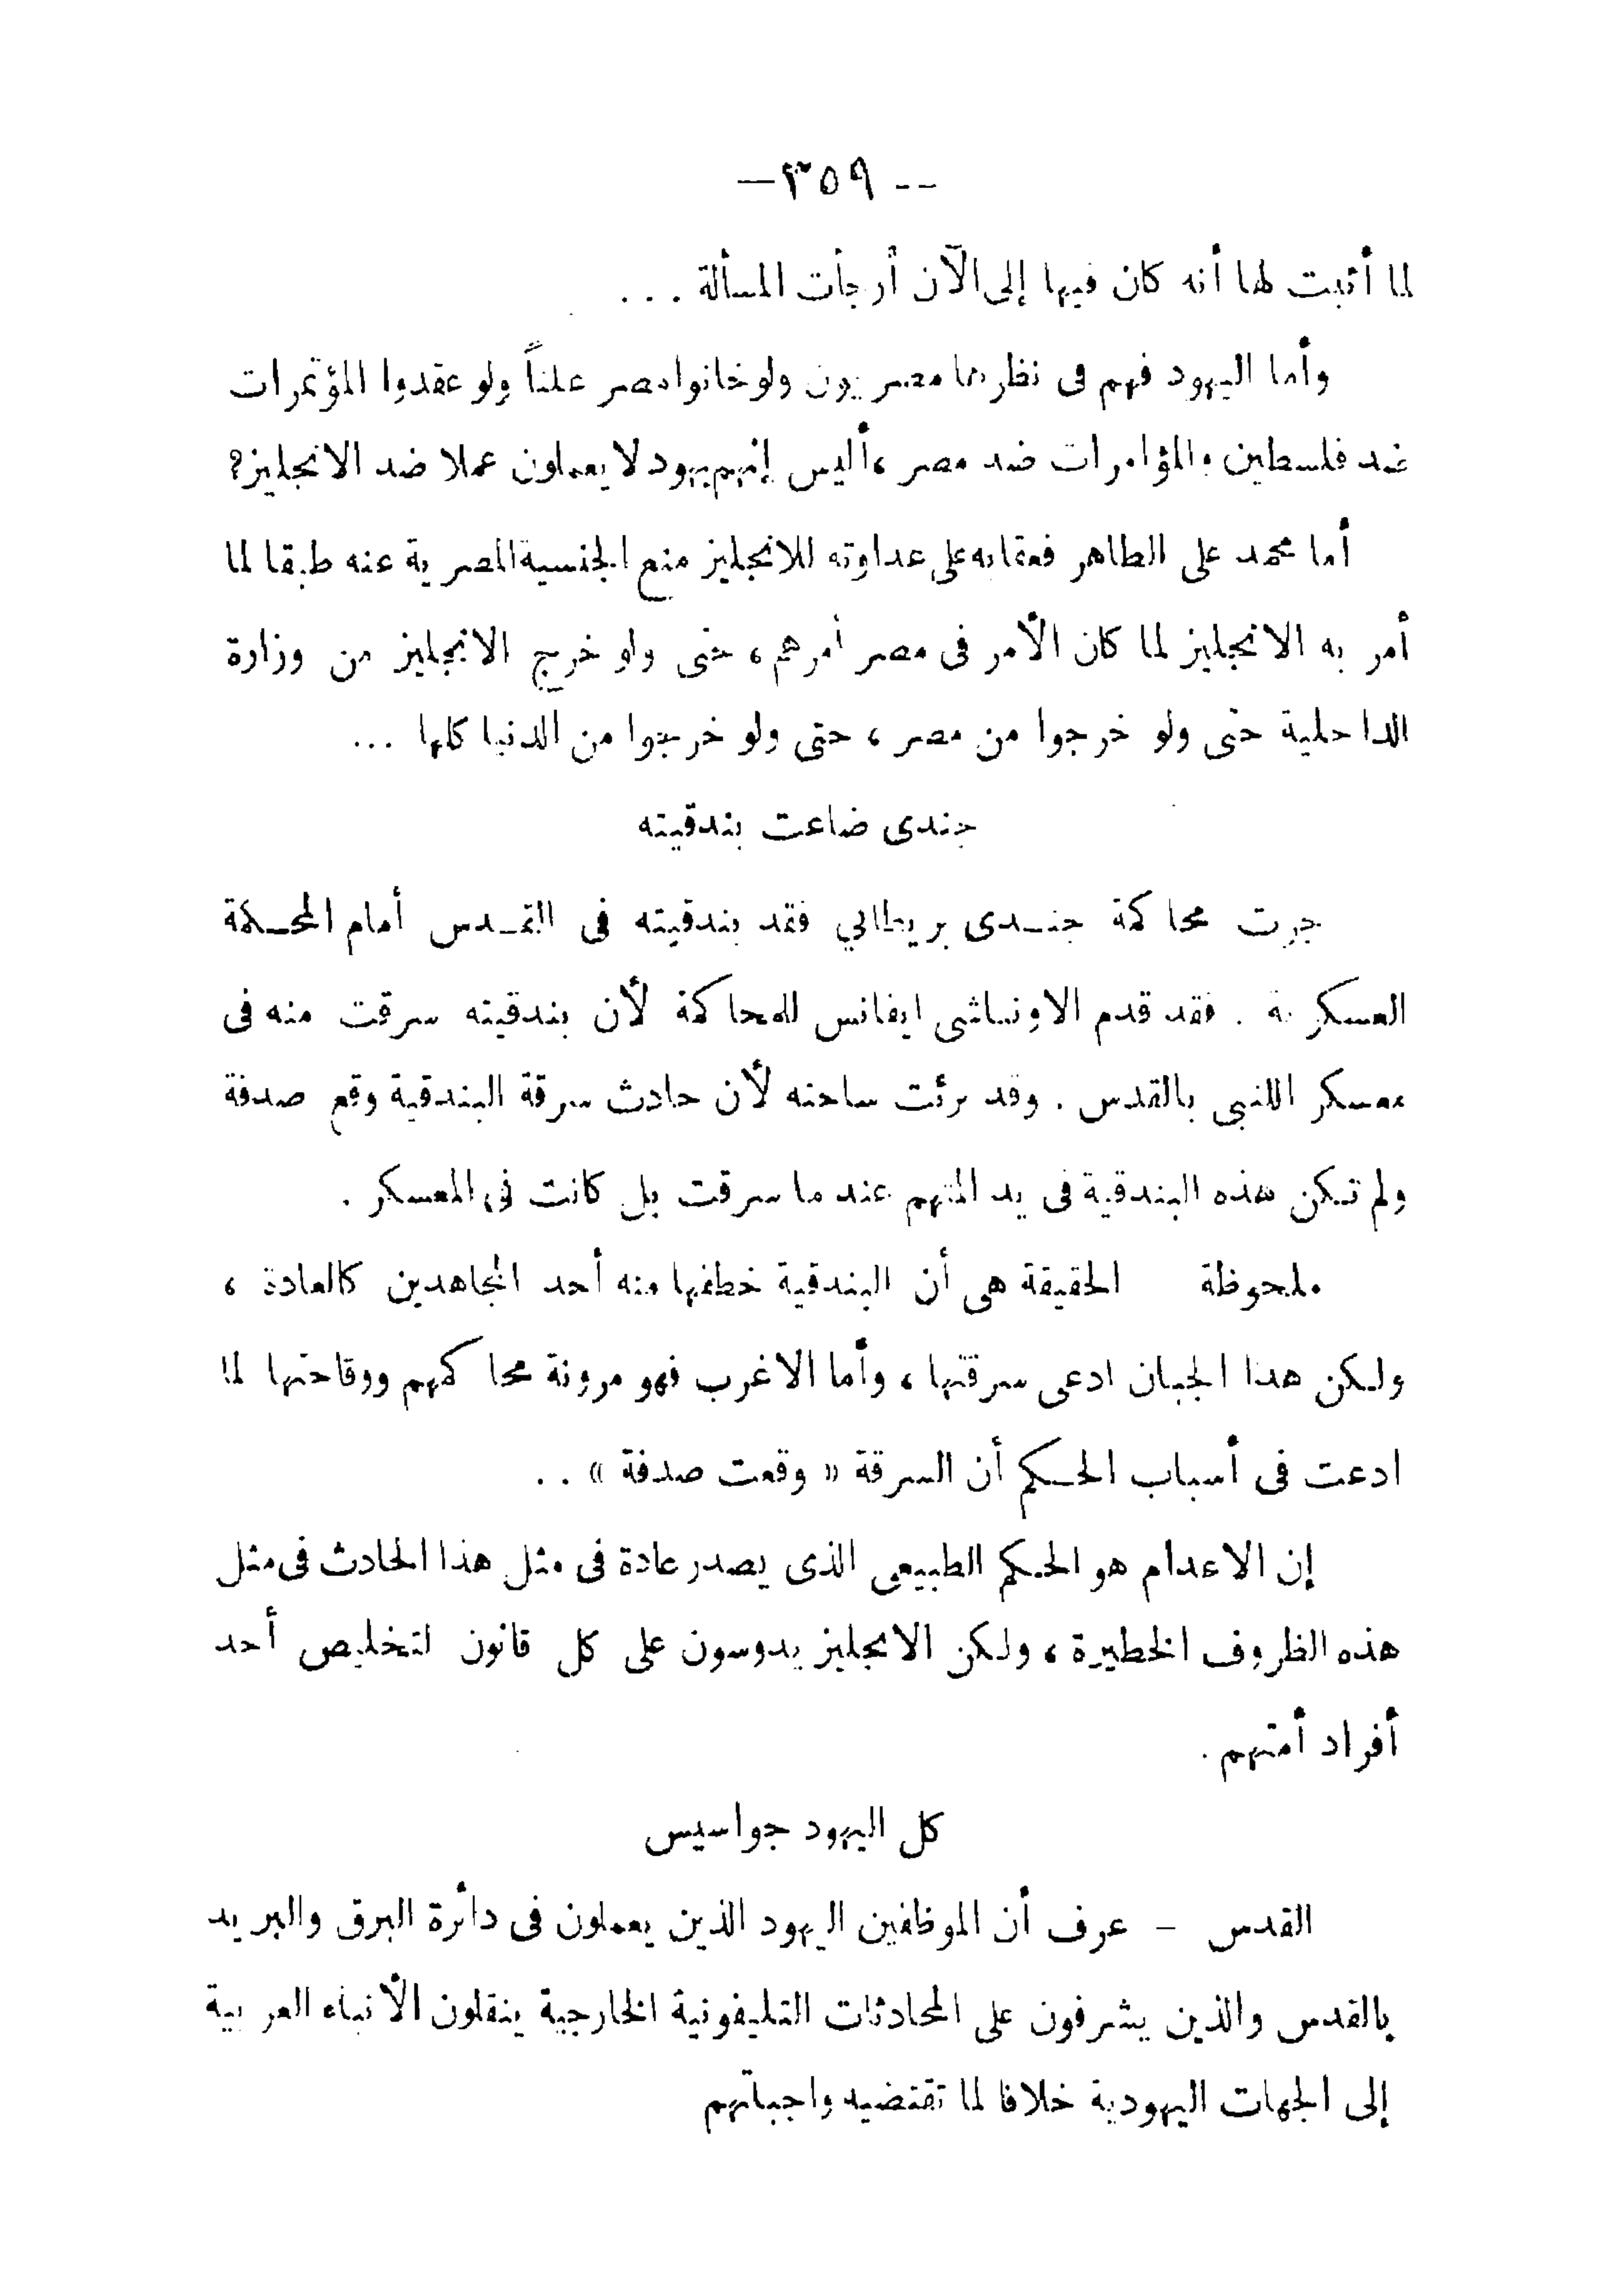 — ٣٥٩ —
لما أثبت لها أنه كان فيها إلى الآن أرجأت المسألة . . .
وأما اليهود فهم فى نظرها مصريون ولو خانوا مصر علناً ولو عقدوا المؤتمرات
ضد فلسطين والمؤامرات ضد مصر ، أليس إنهم يهود لا يعملون عملا ضد الانجليز ؟
أما محمد على الطاهر فعقابه على عداوته للانجليز منع الجنسية المصرية عنه طبقا لما
أمر به الانجليز لما كان الأمر فى مصر أمرهم ، حتى ولو خرج الانجليز من وزارة
الداخلية حتى ولو خرجوا من مصر ، حتى ولو خرجوا من الدنيا كلها ...
جندى ضاعت بندقيته
جرت محاكمة جنـدى بريطاني فقد بندقيته فى القـدس أمام المحـكمة
العسكرية . فقد قدم الاونباشى ايفانس للمحاكمة لأن بندقيته سرقت منه فى
معسكر اللنبى بالقدس . وقد برئت ساحته لأن حادث سرقة البندقية وقع صدفة
ولم تـكن هذه البندقية فى يد المتهم عند ما سرقت بل كانت فى المعسكر .
ملحوظة الحقيقة هى أن البندقية خطفها منه أحد المجاهدين كالعادة ،
ولـكن هذا الجبان ادعى سرقتها ، وأما الاغرب فهو مرونة محاكمهم ووقاحتها لما
ادعت فى أسباب الحـكم أن السرقة « وقعت صدفة » . .
إن الاعدام هو الحـكم الطبيعى الذى يصدر عادة فى مثل هذا الحادث فى مثل
هذه الظروف الخطيرة ، ولـكن الانجليز يدوسون على كل قانون لتخليص أحد
أفراد أمتهم .
كل اليهود جواسيس
القدس – عرف أن الموظفين اليهود الذين يعملون فى دائرة البرق والبريد
بالقدس والذين يشرفون على المحادثات التليفونية الخارجية ينقلون الأنباء العربية
إلى الجهات اليهودية خلافا لما تقتضيه واجباتهم